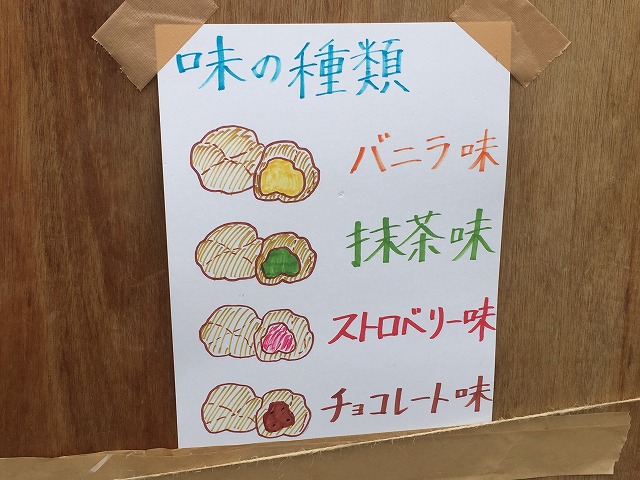 味の種類
バニラ味
抹茶味
ストロベリー味
チョコレート味